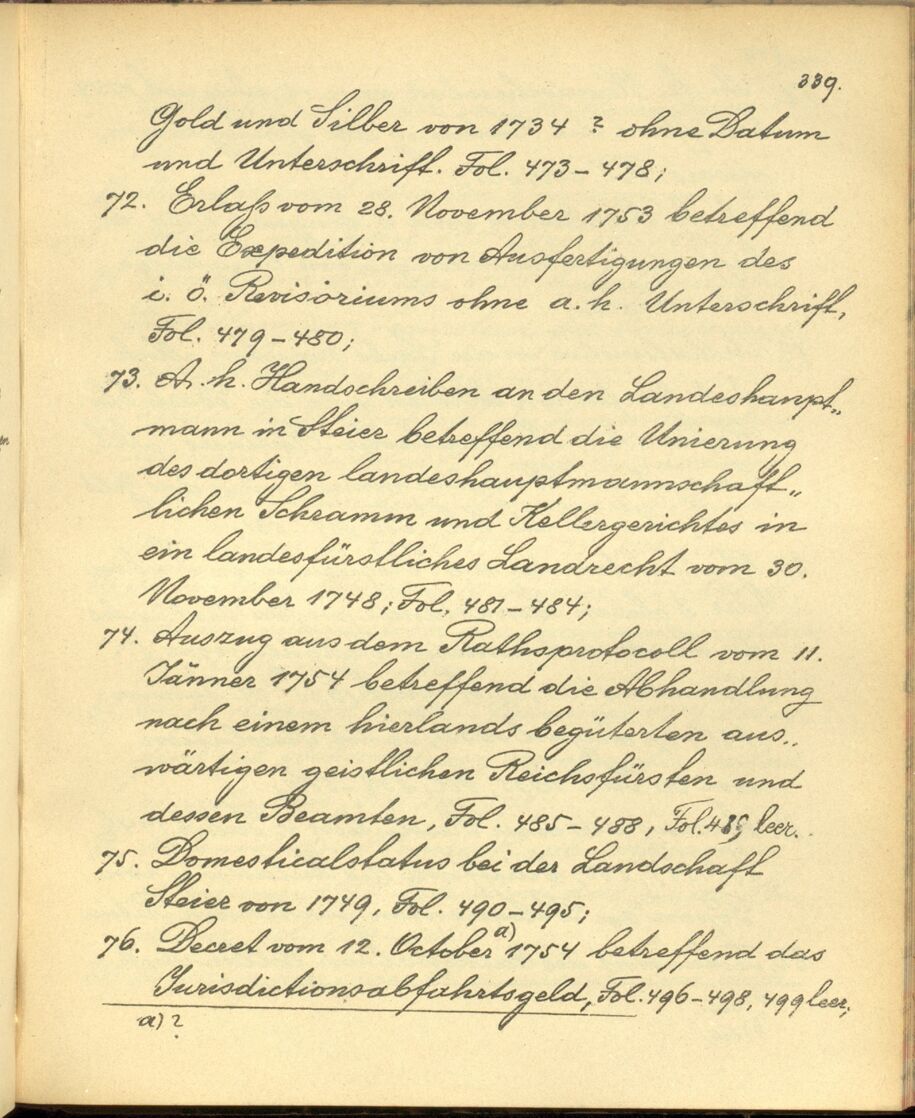 339.
Gold und Silber von 1734 ? ohne Datum
und Unterschrift. Fol. 473–478;
72. Erlaß vom 28. November 1753 betreffend
die Expedition von Ausfertigungen des
i. ö. Revisoriums ohne a. h. Unterschrift,
Fol. 479–480;
73. A. h. Handschreiben an den Landeshaupt„
mann in Steier betreffend die Unierung
des dortigen landeshauptmannschaft„
lichen Schramm und Kellergerichtes in
ein landesfürstliches Landrecht vom 30.
November 1748; Fol. 481–484;
74. Auszug aus dem Rathsprotocoll vom 11.
Jänner 1754 betreffend die Abhandlung
nach einem hierlands begüterten aus„
wärtigen geistlichen Reichsfürsten und
dessen Beamten, Fol. 485–488, Fol. leer.
75. Domesticalstatus bei der Landschaft
Steier von 1749, Fol. 490–495;
76. Decret vom 12. October a) 1754 betreffend das
Jurisdictionsabfahrtsgeld, Fol. 496–498, 499 leer;
a) ?